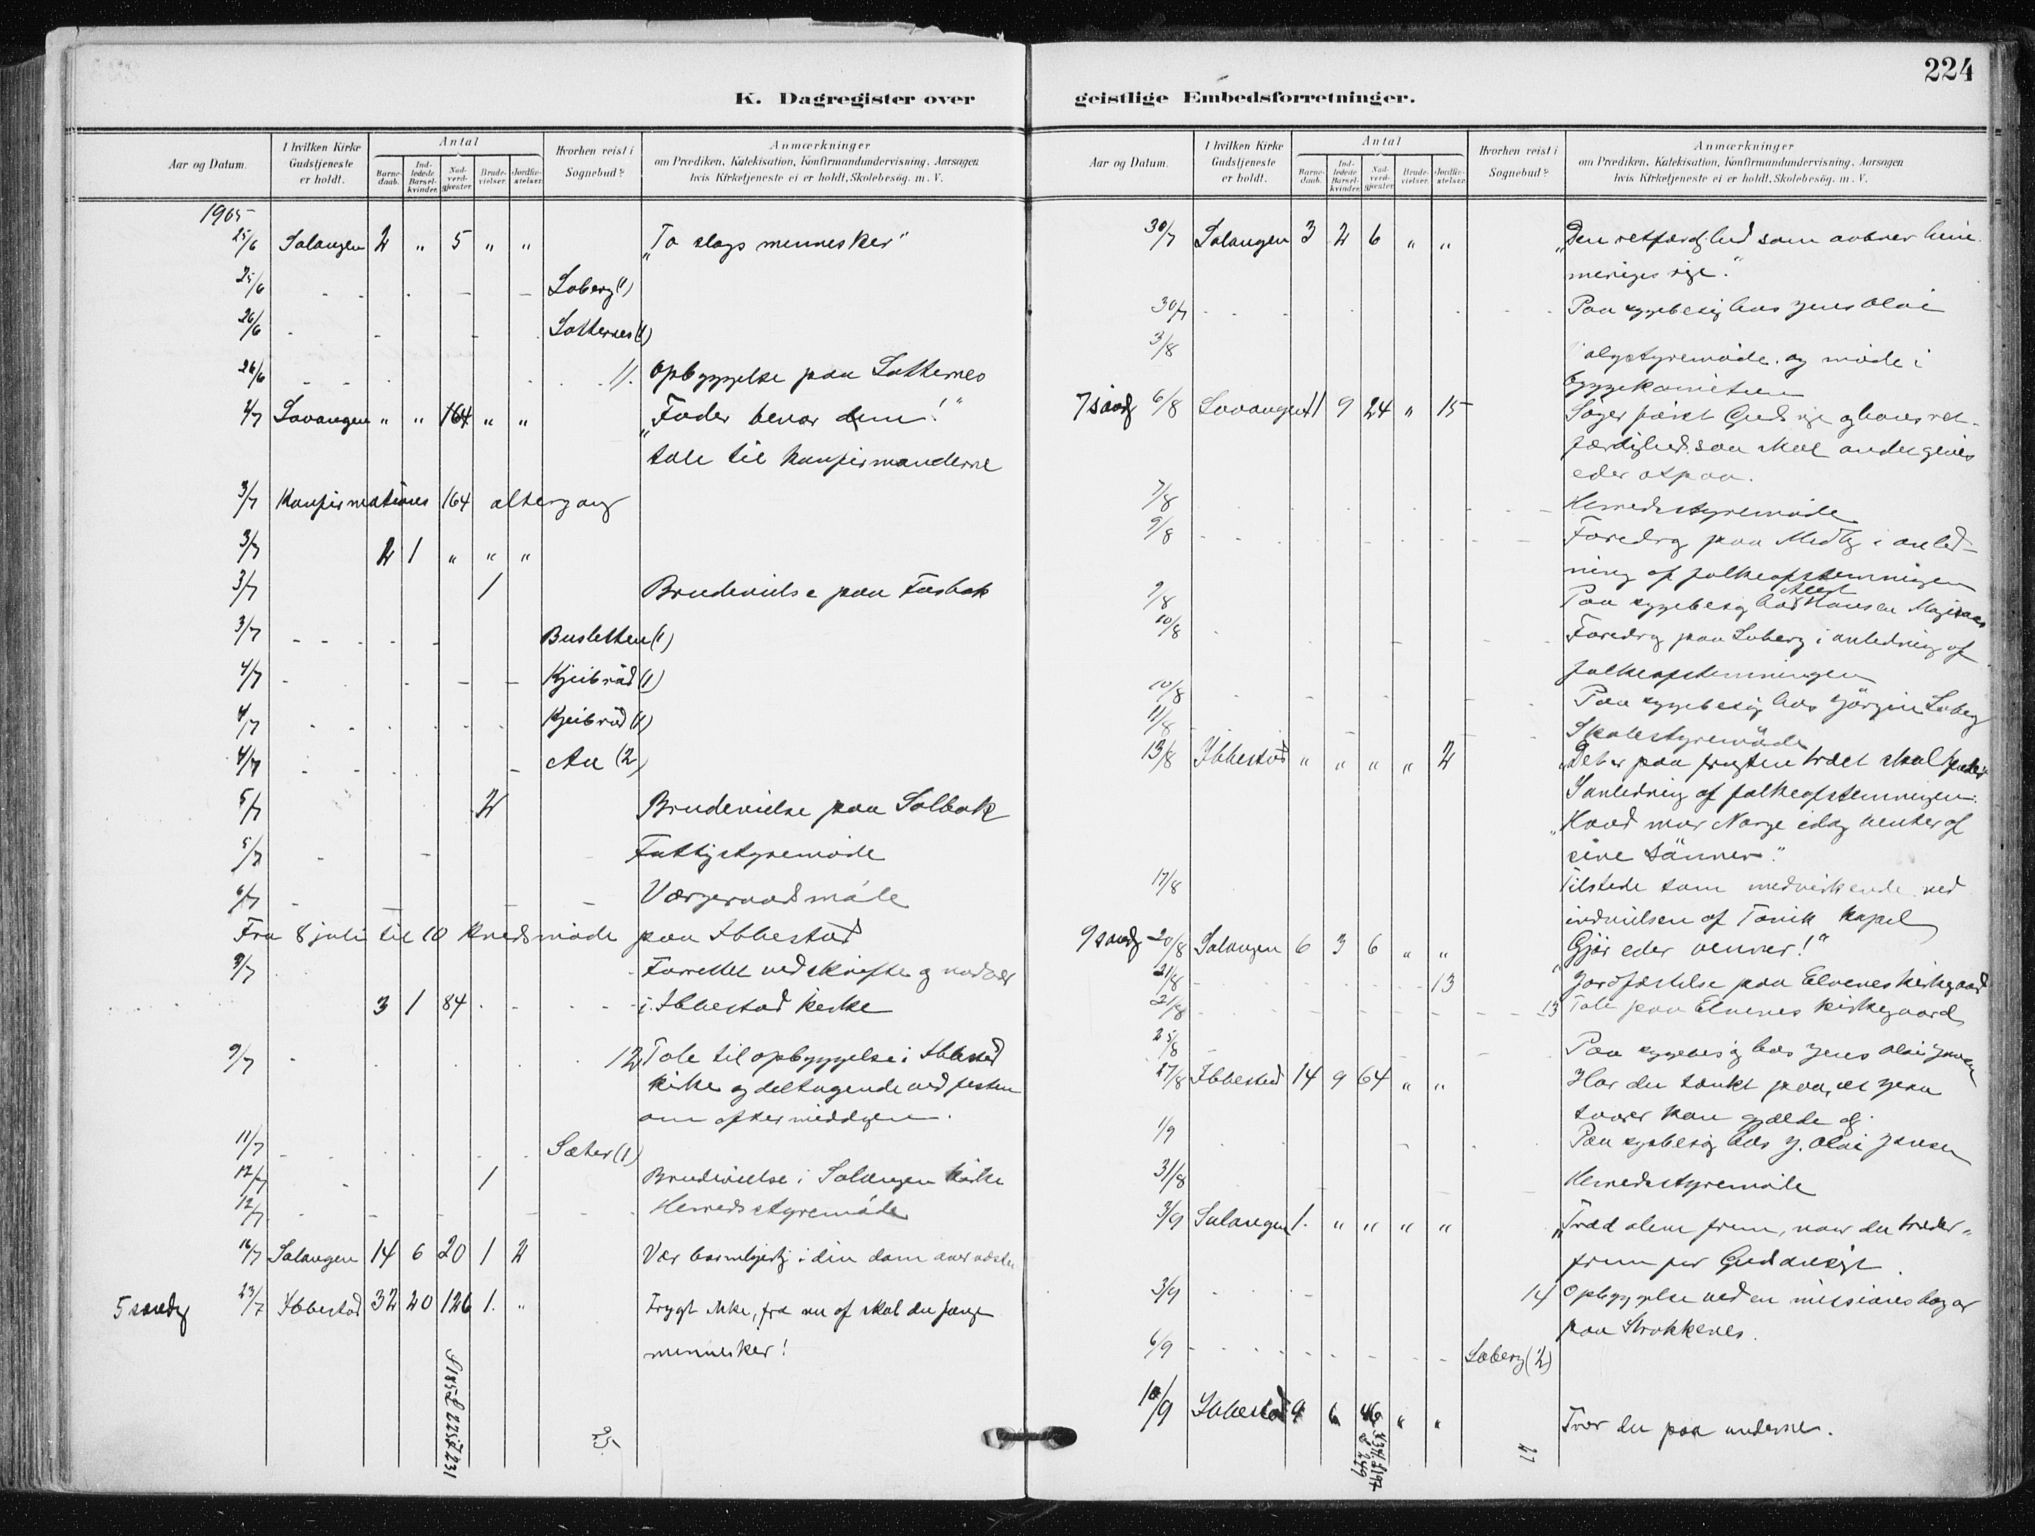 224
K. Dagregister over
geistlige Embedsforretninger.
Aar og Datum.
I hvilken Kirke Gudstjeneste er holdt.
Antal
Barnedaab.
Indledede Barselkvinder.
Nadverdgjæster.
Brudevielser.
Jordfæstelser.
Hvorhen reist i Sognebud?
Anmærkninger
om Prædiken, Katekisation, Konfirmandundervisning. Aarsagen
hvis Kirketjeneste ei er holdt, Skolebesög. m. V.
1905
25/6 Salangen 2 " 5 " " "To slags mennesker"
25/6 Soberg (1)
26/6 (1)
26/6 11. Opbyggelse paa
2/7 Lavangen " " 164 " " "Fader bevar dem!"
tale til konfirmanderne
3/7 Konfirmationes 164 altergang
3/7 2 1 " " "
3/7 1 Brudevielse paa Fosbak
3/7 Busletten (1)
4/7 (1)
4/7 (1)
4/7 Aa (2)
5/7 2 Brudevielse paa Solbak
5/7 Fattigstyremøde
6/7 Værgeraadsmøde
Fra 8 juli til 10 kredsmøde paa Ibbestad
9/7 Forrettet ved skrifte og nadver
3 1 84 i Ibbestad kirke
9/7 12 Tale til opbyggelse i Ibbestad
kirke og deltagende ved festen
om eftermiddagen.
11/7 Sæter (1)
12/7 1 Brudevielse i Salangen kirke
12/7 Herredsstyremøde
16/7 Salangen 14 6 20 1 2 Vær barmhjertig i din dom over næsten
5 søndag 23/7 Ibbestad 32 20 126 1. " Frygt ikke, fra nu af skal du fange
mennesker!
25
Aar og Datum.
I hvilken Kirke Gudstjeneste er holdt.
Antal
Barnedaab.
Indledede Barselkvinder.
Nadverdgjæster.
Brudevielser.
Jordfæstelser.
Hvorhen reist i Sognebud?
Anmærkninger
om Prædiken, Katekisation, Konfirmandundervisning. Aarsagen
hvis Kirketjeneste ei er holdt, Skolebesög. m. V.
30/7 Salangen 3 2 6 " " "Den retfærdighed som aabner himmeriges rige."
30/7 Paa sygebesøg hos Jens Olai
3/8 møde og møde i
byggekomiteen
7 sønd 6/8 Lavangen 11 9 24 " 15 Søger først Guds rige og hans retfærdighed, saa skal andet gives
eder ovpaa.
7/8 Herredsstyremøde
9/8 Foredrag paa Medby i anledning af folkeafstemningen
9/8 Paa sygebesøg hos Hansen
10/8 Foredrag paa Soberg i anledning af
folkeafstemningen
10/8 Paa sygebesøg hos Jørgen Soberg
11/8 Skolestyremøde
13/8 Ibbestad " " " " 2 "Det er paa frugten træet skal kjendes
I anledning af folkeafstemningen:
"Hvad mor Norge idag venter af
sine sønner."
17/8 Tilstede som medvirkende ved
indvielsen af kapel
9 sønd 20/8 Salangen 6 3 6 " " "Gjør eder venner!"
21/8 13 Jordfæstelse paa Elvenes kirkegaard
21/8 13 Tale paa Elvenes kirkegaard
25/8 Paa sygebesøg hos Jens Olai Jensen
27/8 Ibbestad 14 9 64 " " Har du tænkt paa, at
taarer kan gjælde dig
1/9 Paa sygebesøg hos J. Olai Jensen
31/8 Herredsstyremøde
3/9 Salangen 1. " " " " "Træd alene frem, naar du træder
frem for Guds aasyn
3/9 14 Opbyggelse ved en missionsbazar
paa Strokkenes.
6/9 Soberg (2)
10/9 Ibbestad 9 6 46 " " Tror du paa underne.
27